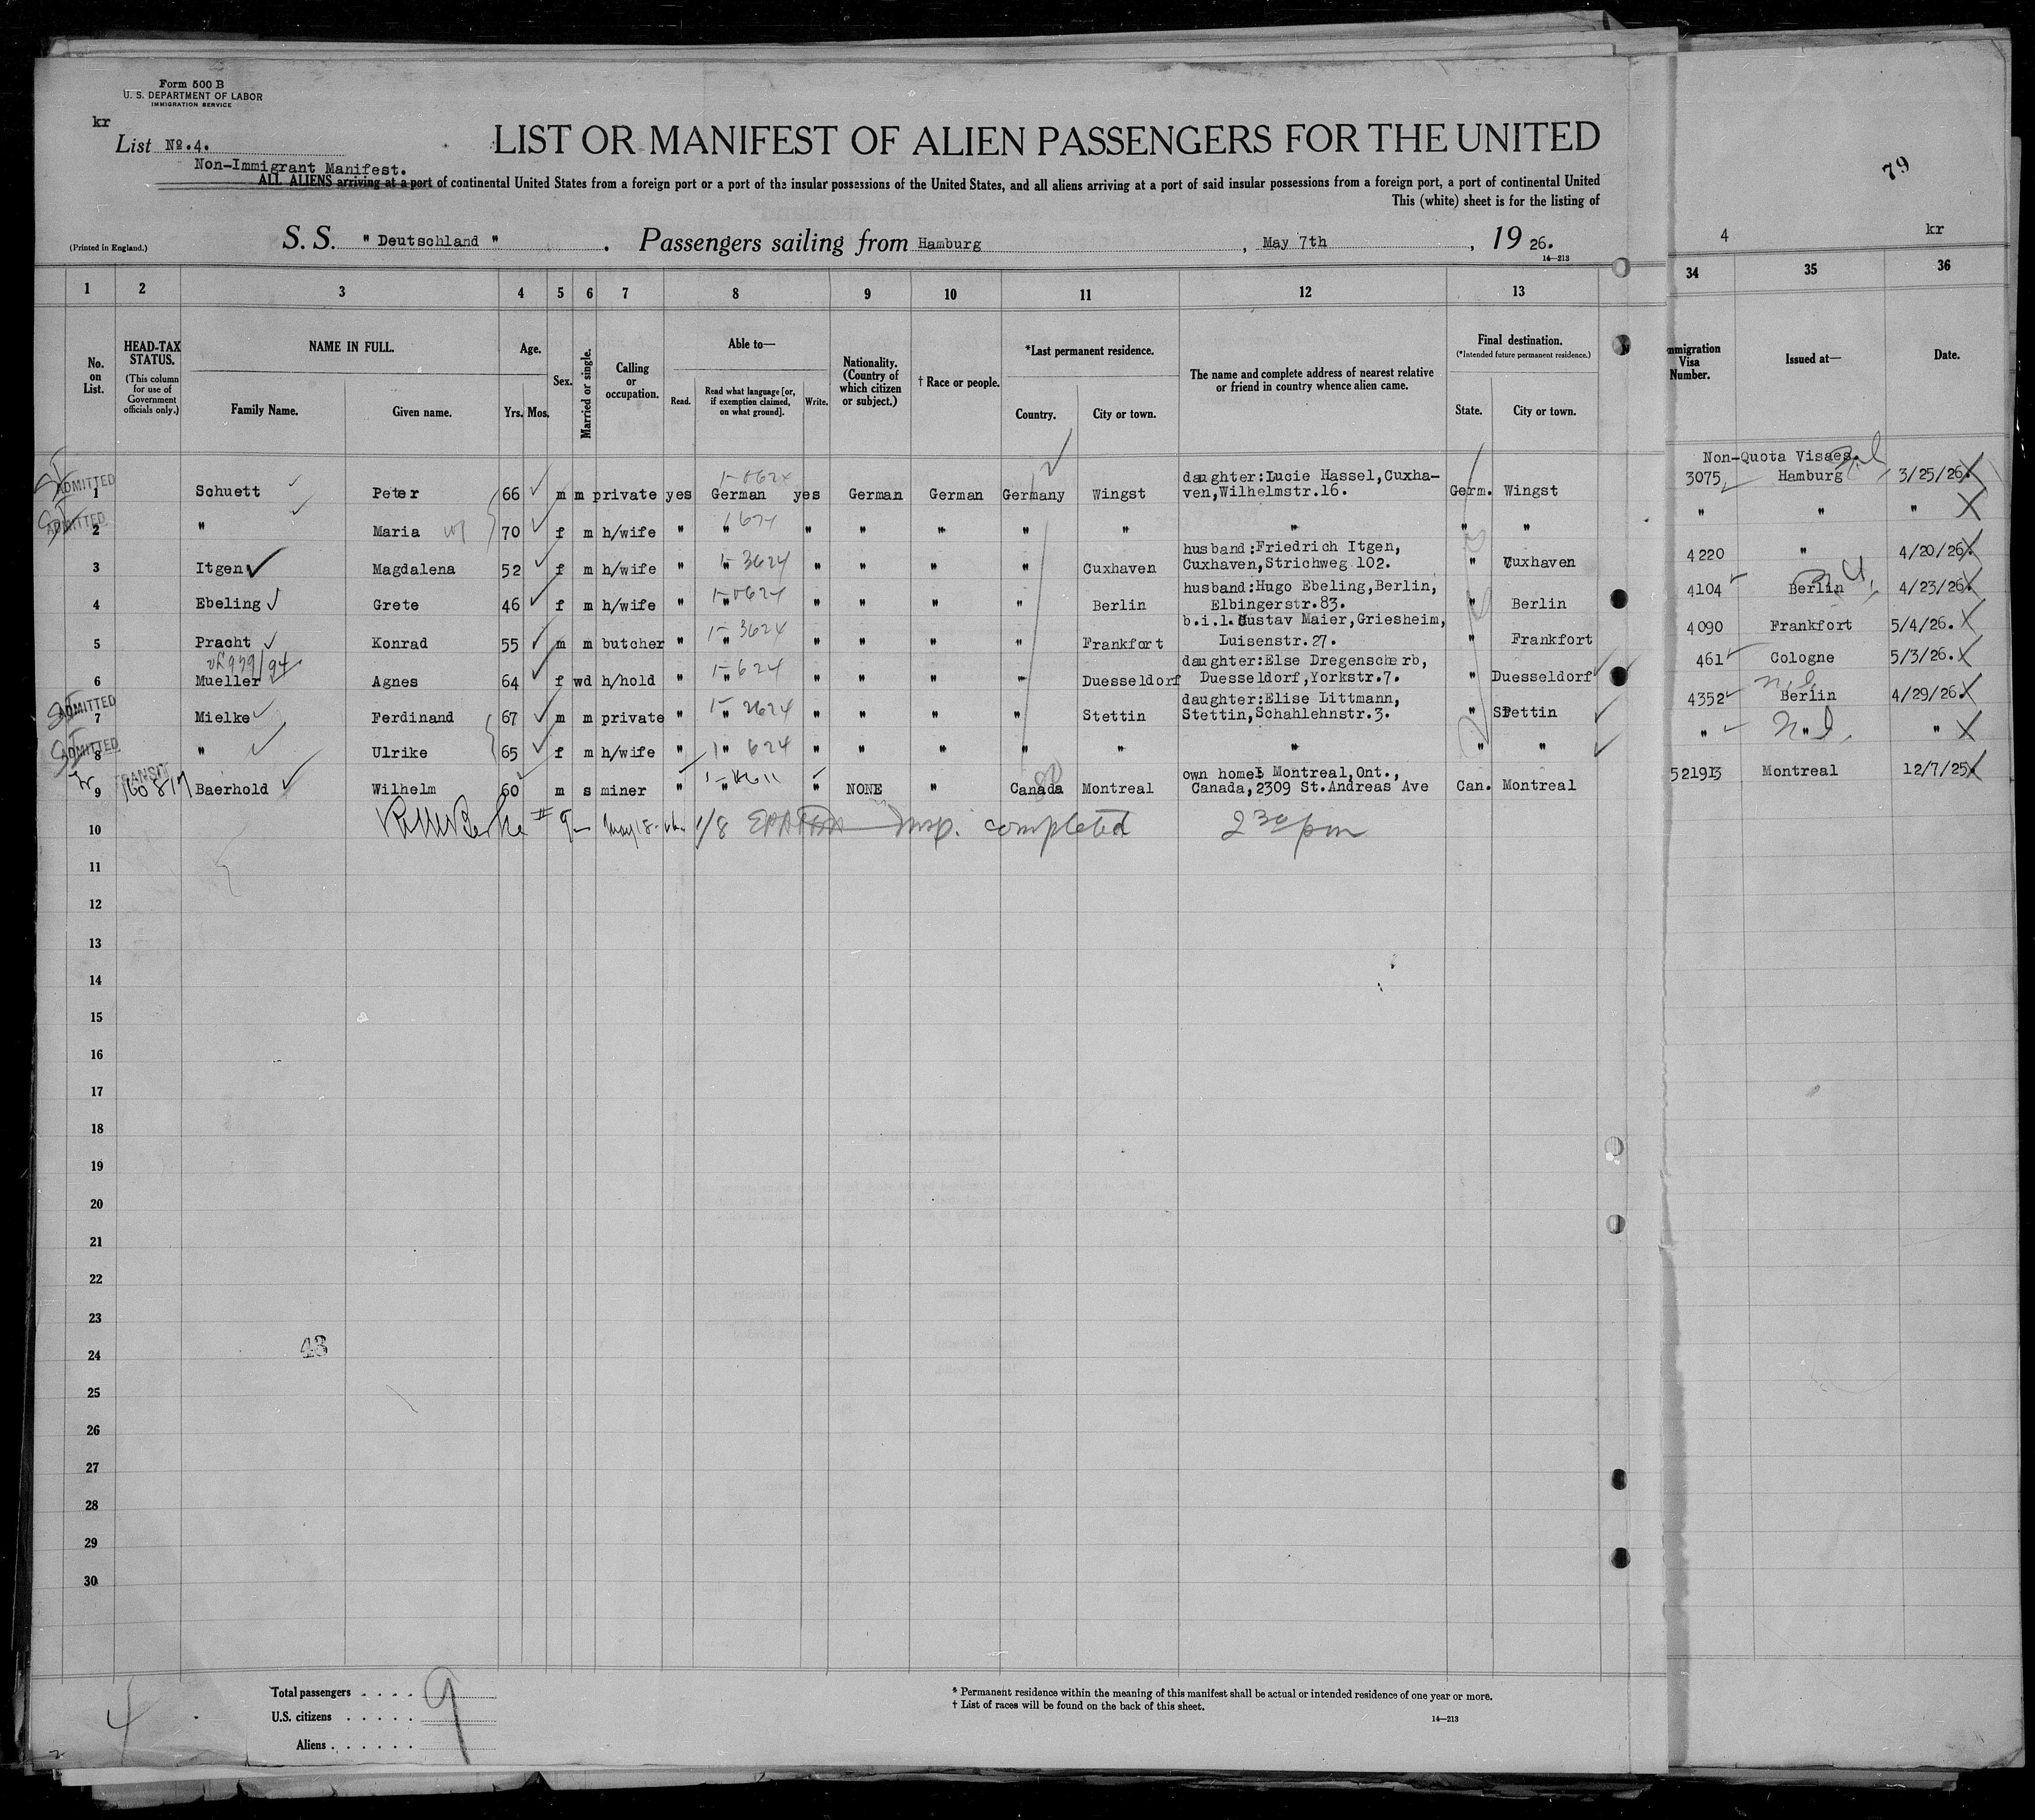 Form 500 B
U. S. DEPARTMENT OF LABOR
IMMIGRATION SERVICE
kr
List No. 4.
LIST OR MANIFEST OF ALIEN PASSENGERS FOR THE UNITED
Non-Immigrant Manifest.
ALL ALIENS arriving at a port of continental United States from a foreign port or a port of the insular possessions of the United States, and all aliens arriving at a port of said insular possessions from a foreign port, a port of continental United
This (white) sheet is for the listing of
79
(Printed in England.) S. S. " Deutschland " . Passengers sailing from Hamburg , May 7th , 19 26.
14—213
4 kr
1 2 3 4 5 6 7 8 9 10 11 12 13 34 35 36
No. on List.
HEAD-TAX STATUS.
(This column for use of Government officials only.)
NAME IN FULL.
Family Name. Given name.
Age.
Yrs. Mos.
Sex.
Married or single.
Calling or occupation.
Able to—
Read. Read what language [or, if exemption claimed, on what ground]. Write.
Nationality. (Country of which citizen or subject.)
† Race or people.
*Last permanent residence.
Country. City or town.
The name and complete address of nearest relative or friend in country whence alien came.
Final destination.
(*Intended future permanent residence.)
State. City or town.
mmigration Visa Number.
Issued at—
Date.
Non-Quota Visaes.
ADMITTED
1 Schuett Peter 66 m m private yes German yes German German Germany Wingst daughter:Lucie Hassel,Cuxha-ven,Wilhelmstr.16. Germ. Wingst 3075 Hamburg 3/25/26.
ADMITTED
2 " Maria 70 f m h/wife " " " " " " " " " " " " "
3 Itgen Magdalena 52 f m h/wife " " " " " " Cuxhaven husband:Friedrich Itgen, Cuxhaven,Strichweg 102. " Cuxhaven 4220 " 4/20/26.
4 Ebeling Grete 46 f m h/wife " " " " " " Berlin husband:Hugo Ebeling,Berlin, Elbingerstr.83. " Berlin 4104 Berlin 4/23/26.
5 Pracht Konrad 55 m m butcher " " " " " " Frankfort b.i.l.Gustav Maier,Griesheim, Luisenstr.27. " Frankfort 4090 Frankfort 5/4/26.
6 Mueller Agnes 64 f wd h/hold " " " " " " Duesseldorf daughter:Else Dregenscherb, Duesseldorf,Yorkstr.7. " Duesseldorf 461 Cologne 5/3/26.
ADMITTED
7 Mielke Ferdinand 67 m m private " " " " " " Stettin daughter:Elise Littmann, Stettin,Schahlehnstr.3. " Stettin 4352 Berlin 4/29/26.
ADMITTED
8 " Ulrike 65 f m h/wife " " " " " " " " " " " " "
TRANSIT
9 Baerhold Wilhelm 60 m s miner " " " NONE " Canada Montreal own home: Montreal,Ont., Canada,2309 St.Andreas Ave Can. Montreal 521913 Montreal 12/7/25.
10 # 9 May 18 insp. completed 2 30 pm
11
12
13
14
15
16
17
18
19
20
21
22
23
24 43
25
26
27
28
29
30
Total passengers . . . . 9
U.S. citizens . . . . .
Aliens . . . . . .
* Permanent residence within the meaning of this manifest shall be actual or intended residence of one year or more.
† List of races will be found on the back of this sheet.
14—213
4